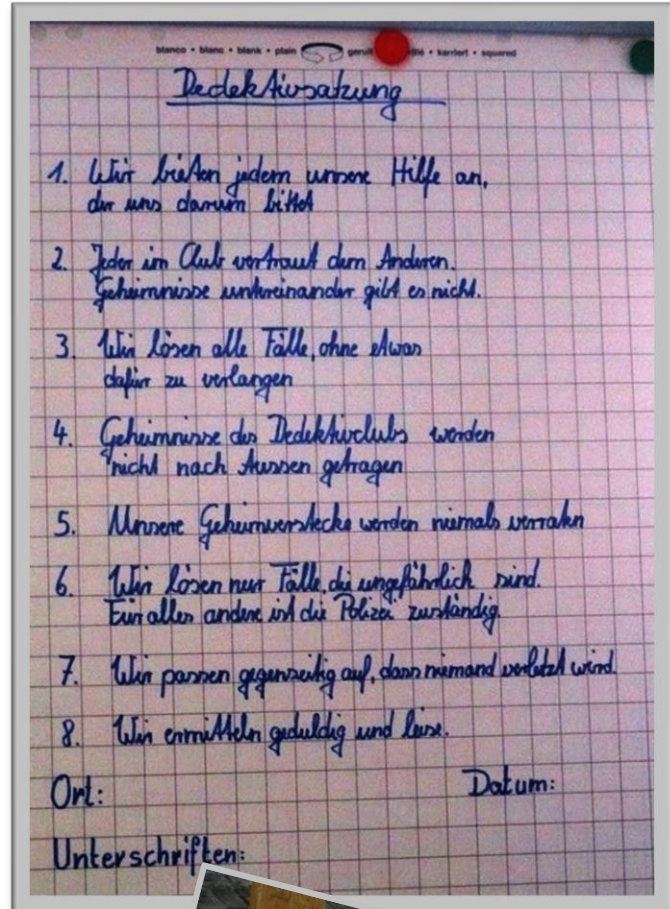 blanco • blanc • blank • plain geruit • karriert • squared
Dedektivsatzung
1. Wir bieten jedem unsere Hilfe an,
der uns darum bittet
2. Jeder im Club vertraut dem Anderen.
Geheimnisse untereinander gibt es nicht.
3. Wir lösen alle Fälle, ohne etwas
dafür zu verlangen
4. Geheimnisse des Dedektivclubs werden
nicht nach Aussen getragen
5. Unsere Geheimverstecke werden niemals verraten
6. Wir lösen nur Fälle, die ungefährlich sind.
Für alles andere ist die Polizei zuständig.
7. Wir passen gegenseitig auf, dass niemand verletzt wird.
8. Wir ermitteln geduldig und leise.
Ort: Datum:
Unterschriften: